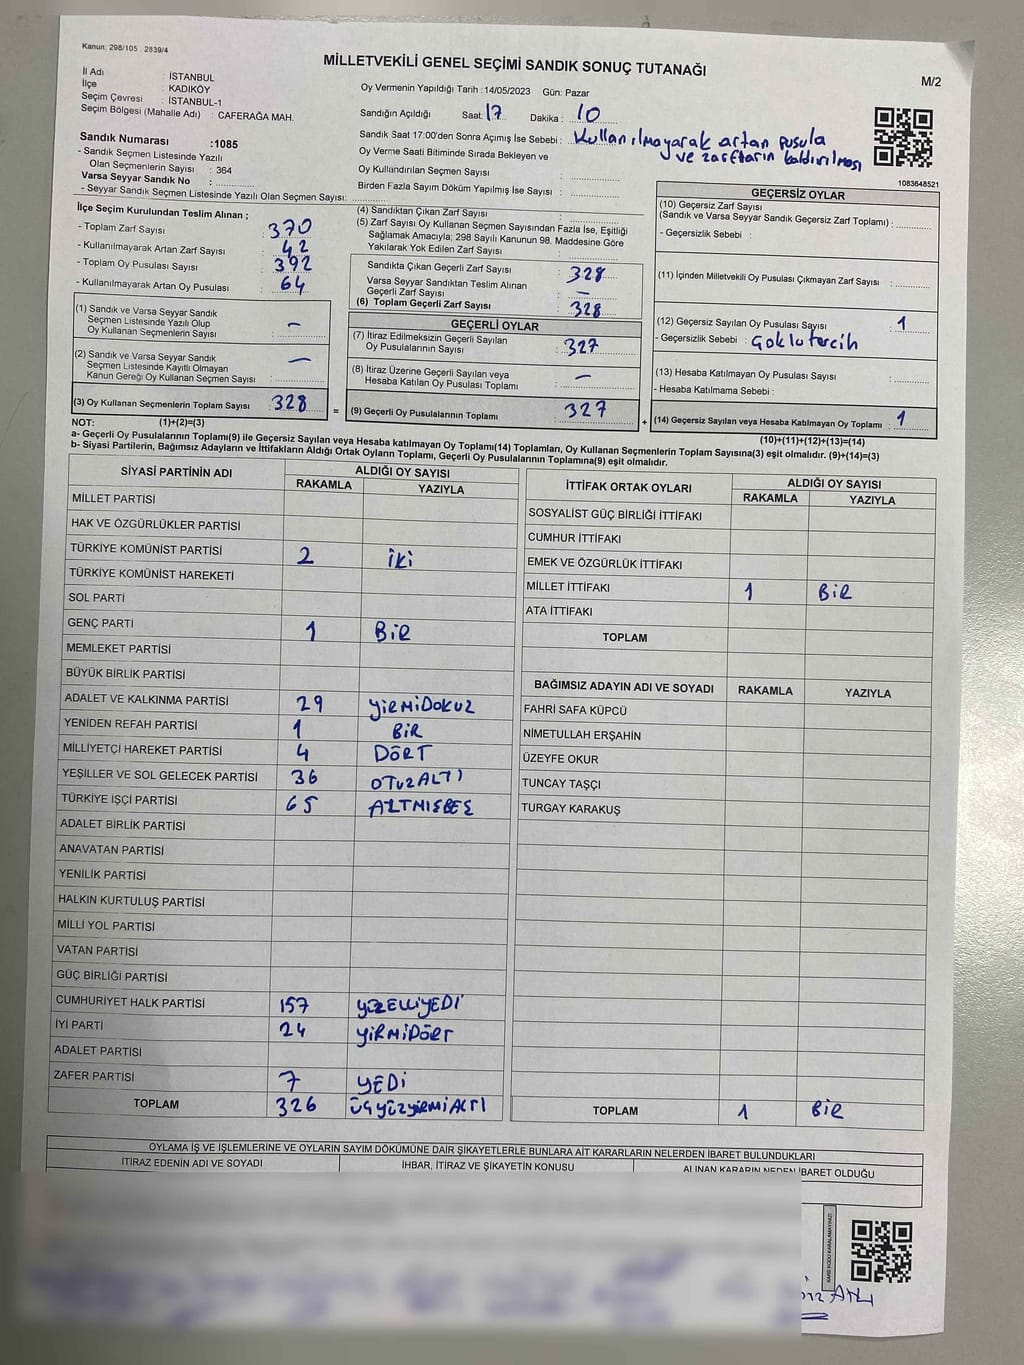 Kanun. 298/105 2839/4
MİLLETVEKİLİ GENEL SEÇİMİ SANDIK SONUÇ TUTANAĞI
M/2
İl Adı : İSTANBUL
İlçe : KADIKÖY
Seçim Çevresi : İSTANBUL-1
Seçim Bölgesi (Mahalle Adı) : CAFERAĞA MAH.
Oy Vermenin Yapıldığı Tarih :14/05/2023 Gün: Pazar
Sandığın Açıldığı Saat: 17 Dakika : 10
Sandık Saat 17:00'den Sonra Açımış İse Sebebi : Kullanılmayarak artan pusula
ve zarfların kaldırılması
Oy Verme Saati Bitiminde Sırada Bekleyen ve
Oy Kullandırılan Seçmen Sayısı :
Birden Fazla Sayım Döküm Yapılmış İse Sayısı :
1083648521
Sandık Numarası :1085
- Sandık Seçmen Listesinde Yazılı
Olan Seçmenlerin Sayısı : 364
Varsa Seyyar Sandık No :
- Seyyar Sandık Seçmen Listesinde Yazılı Olan Seçmen Sayısı:
İlçe Seçim Kurulundan Teslim Alınan ;
- Toplam Zarf Sayısı : 370
- Kullanılmayarak Artan Zarf Sayısı : 42
- Toplam Oy Pusulası Sayısı : 392
- Kullanılmayarak Artan Oy Pusulası : 64
(1) Sandık ve Varsa Seyyar Sandık
Seçmen Listesinde Yazılı Olup
Oy Kullanan Seçmenlerin Sayısı : –
(2) Sandık ve Varsa Seyyar Sandık
Seçmen Listesinde Kayıtlı Olmayan
Kanun Gereği Oy Kullanan Seçmen Sayısı : –
(3) Oy Kullanan Seçmenlerin Toplam Sayısı 328
(4) Sandıktan Çıkan Zarf Sayısı :
(5) Zarf Sayısı Oy Kullanan Seçmen Sayısından Fazla İse, Eşitliği
Sağlamak Amacıyla, 298 Sayılı Kanunun 98. Maddesine Göre
Yakılarak Yok Edilen Zarf Sayısı :
Sandıkta Çıkan Geçerli Zarf Sayısı : 328
Varsa Seyyar Sandıktan Teslim Alınan
Geçerli Zarf Sayısı : –
(6) Toplam Geçerli Zarf Sayısı : 328
GEÇERLİ OYLAR
(7) İtiraz Edilmeksizin Geçerli Sayılan
Oy Pusulalarının Sayısı : 327
(8) İtiraz Üzerine Geçerli Sayılan veya
Hesaba Katılan Oy Pusulası Toplamı : –
= (9) Geçerli Oy Pusulalarının Toplamı : 327
GEÇERSİZ OYLAR
(10) Geçersiz Zarf Sayısı
(Sandık ve Varsa Seyyar Sandık Geçersiz Zarf Toplamı) :
- Geçersizlik Sebebi :
(11) İçinden Milletvekili Oy Pusulası Çıkmayan Zarf Sayısı :
(12) Geçersiz Sayılan Oy Pusulası Sayısı : 1
- Geçersizlik Sebebi : Çoklu tercih
(13) Hesaba Katılmayan Oy Pusulası Sayısı :
- Hesaba Katılmama Sebebi :
+ (14) Geçersiz Sayılan veya Hesaba Katılmayan Oy Toplamı : 1
NOT: (1)+(2)=(3)
(10)+(11)+(12)+(13)=(14)
a- Geçerli Oy Pusulalarının Toplamı(9) ile Geçersiz Sayılan veya Hesaba katılmayan Oy Toplamı(14) Toplamları, Oy Kullanan Seçmenlerin Toplam Sayısına(3) eşit olmalıdır. (9)+(14)=(3)
b- Siyasi Partilerin, Bağımsız Adayların ve İttifakların Aldığı Ortak Oyların Toplamı, Geçerli Oy Pusulalarının Toplamına(9) eşit olmalıdır.
SİYASİ PARTİNİN ADI ALDIĞI OY SAYISI
RAKAMLA YAZIYLA
MİLLET PARTİSİ
HAK VE ÖZGÜRLÜKLER PARTİSİ
TÜRKİYE KOMÜNİST PARTİSİ 2 İKİ
TÜRKİYE KOMÜNİST HAREKETİ
SOL PARTİ
GENÇ PARTİ 1 BİR
MEMLEKET PARTİSİ
BÜYÜK BİRLİK PARTİSİ
ADALET VE KALKINMA PARTİSİ 29 YİRMİDOKUZ
YENİDEN REFAH PARTİSİ 1 BİR
MİLLİYETÇİ HAREKET PARTİSİ 4 DÖRT
YEŞİLLER VE SOL GELECEK PARTİSİ 36 OTUZALTI
TÜRKİYE İŞÇİ PARTİSİ 65 ALTMIŞBEŞ
ADALET BİRLİK PARTİSİ
ANAVATAN PARTİSİ
YENİLİK PARTİSİ
HALKIN KURTULUŞ PARTİSİ
MİLLİ YOL PARTİSİ
VATAN PARTİSİ
GÜÇ BİRLİĞİ PARTİSİ
CUMHURİYET HALK PARTİSİ 157 YÜZELLİYEDİ
İYİ PARTİ 24 YİRMİDÖRT
ADALET PARTİSİ
ZAFER PARTİSİ 7 YEDİ
TOPLAM 326 ÜÇYÜZYİRMİALTI
İTTİFAK ORTAK OYLARI ALDIĞI OY SAYISI
RAKAMLA YAZIYLA
SOSYALİST GÜÇ BİRLİĞİ İTTİFAKI
CUMHUR İTTİFAKI
EMEK VE ÖZGÜRLÜK İTTİFAKI
MİLLET İTTİFAKI 1 BİR
ATA İTTİFAKI
TOPLAM
BAĞIMSIZ ADAYIN ADI VE SOYADI RAKAMLA YAZIYLA
FAHRİ SAFA KÜPCÜ
NİMETULLAH ERŞAHİN
ÜZEYFE OKUR
TUNCAY TAŞÇI
TURGAY KARAKUŞ
TOPLAM 1 BİR
OYLAMA İŞ VE İŞLEMLERİNE VE OYLARIN SAYIM DÖKÜMÜNE DAİR ŞİKAYETLERLE BUNLARA AİT KARARLARIN NELERDEN İBARET BULUNDUKLARI
İTİRAZ EDENİN ADI VE SOYADI İHBAR, İTİRAZ VE ŞİKAYETİN KONUSU ALINAN KARARIN NEDEN İBARET OLDUĞU
KARE KODU KARALAMAYINIZ!